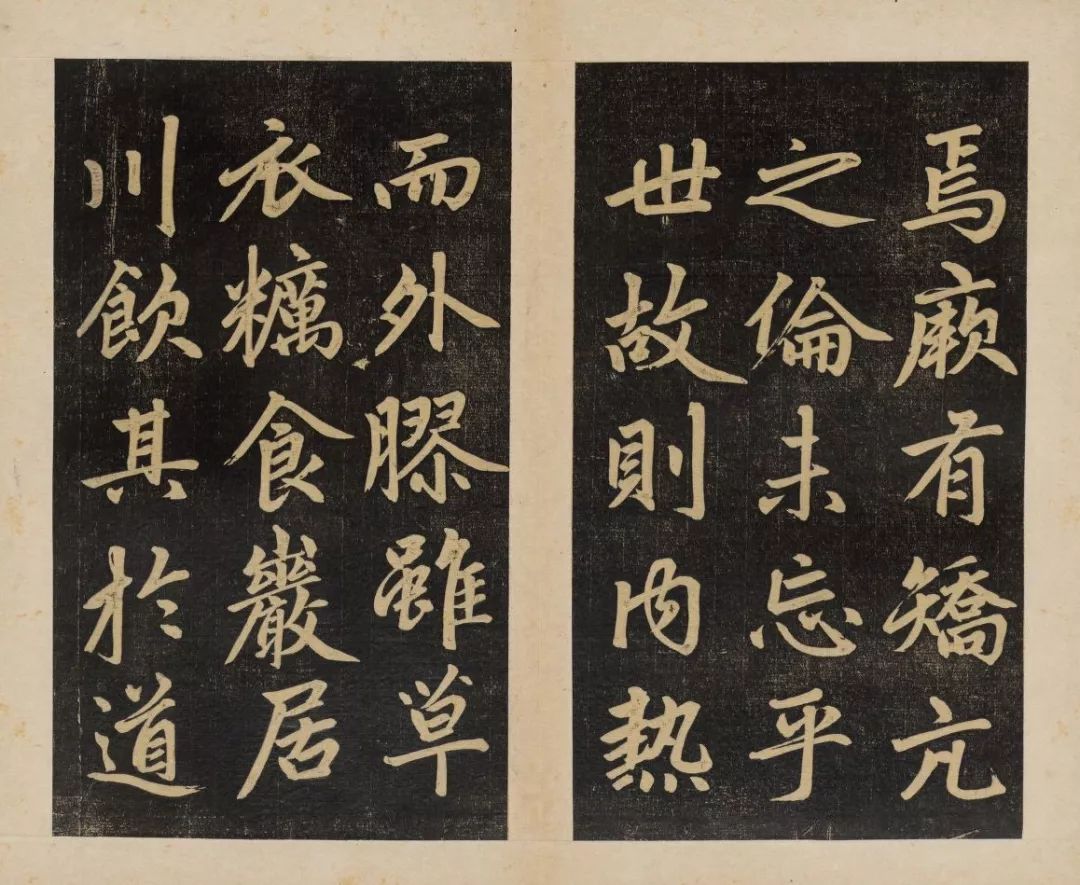 焉厥有矯亢
之倫未忘乎
世故則内熱
而外膠雖草
衣糲食巖居
川飲其於道